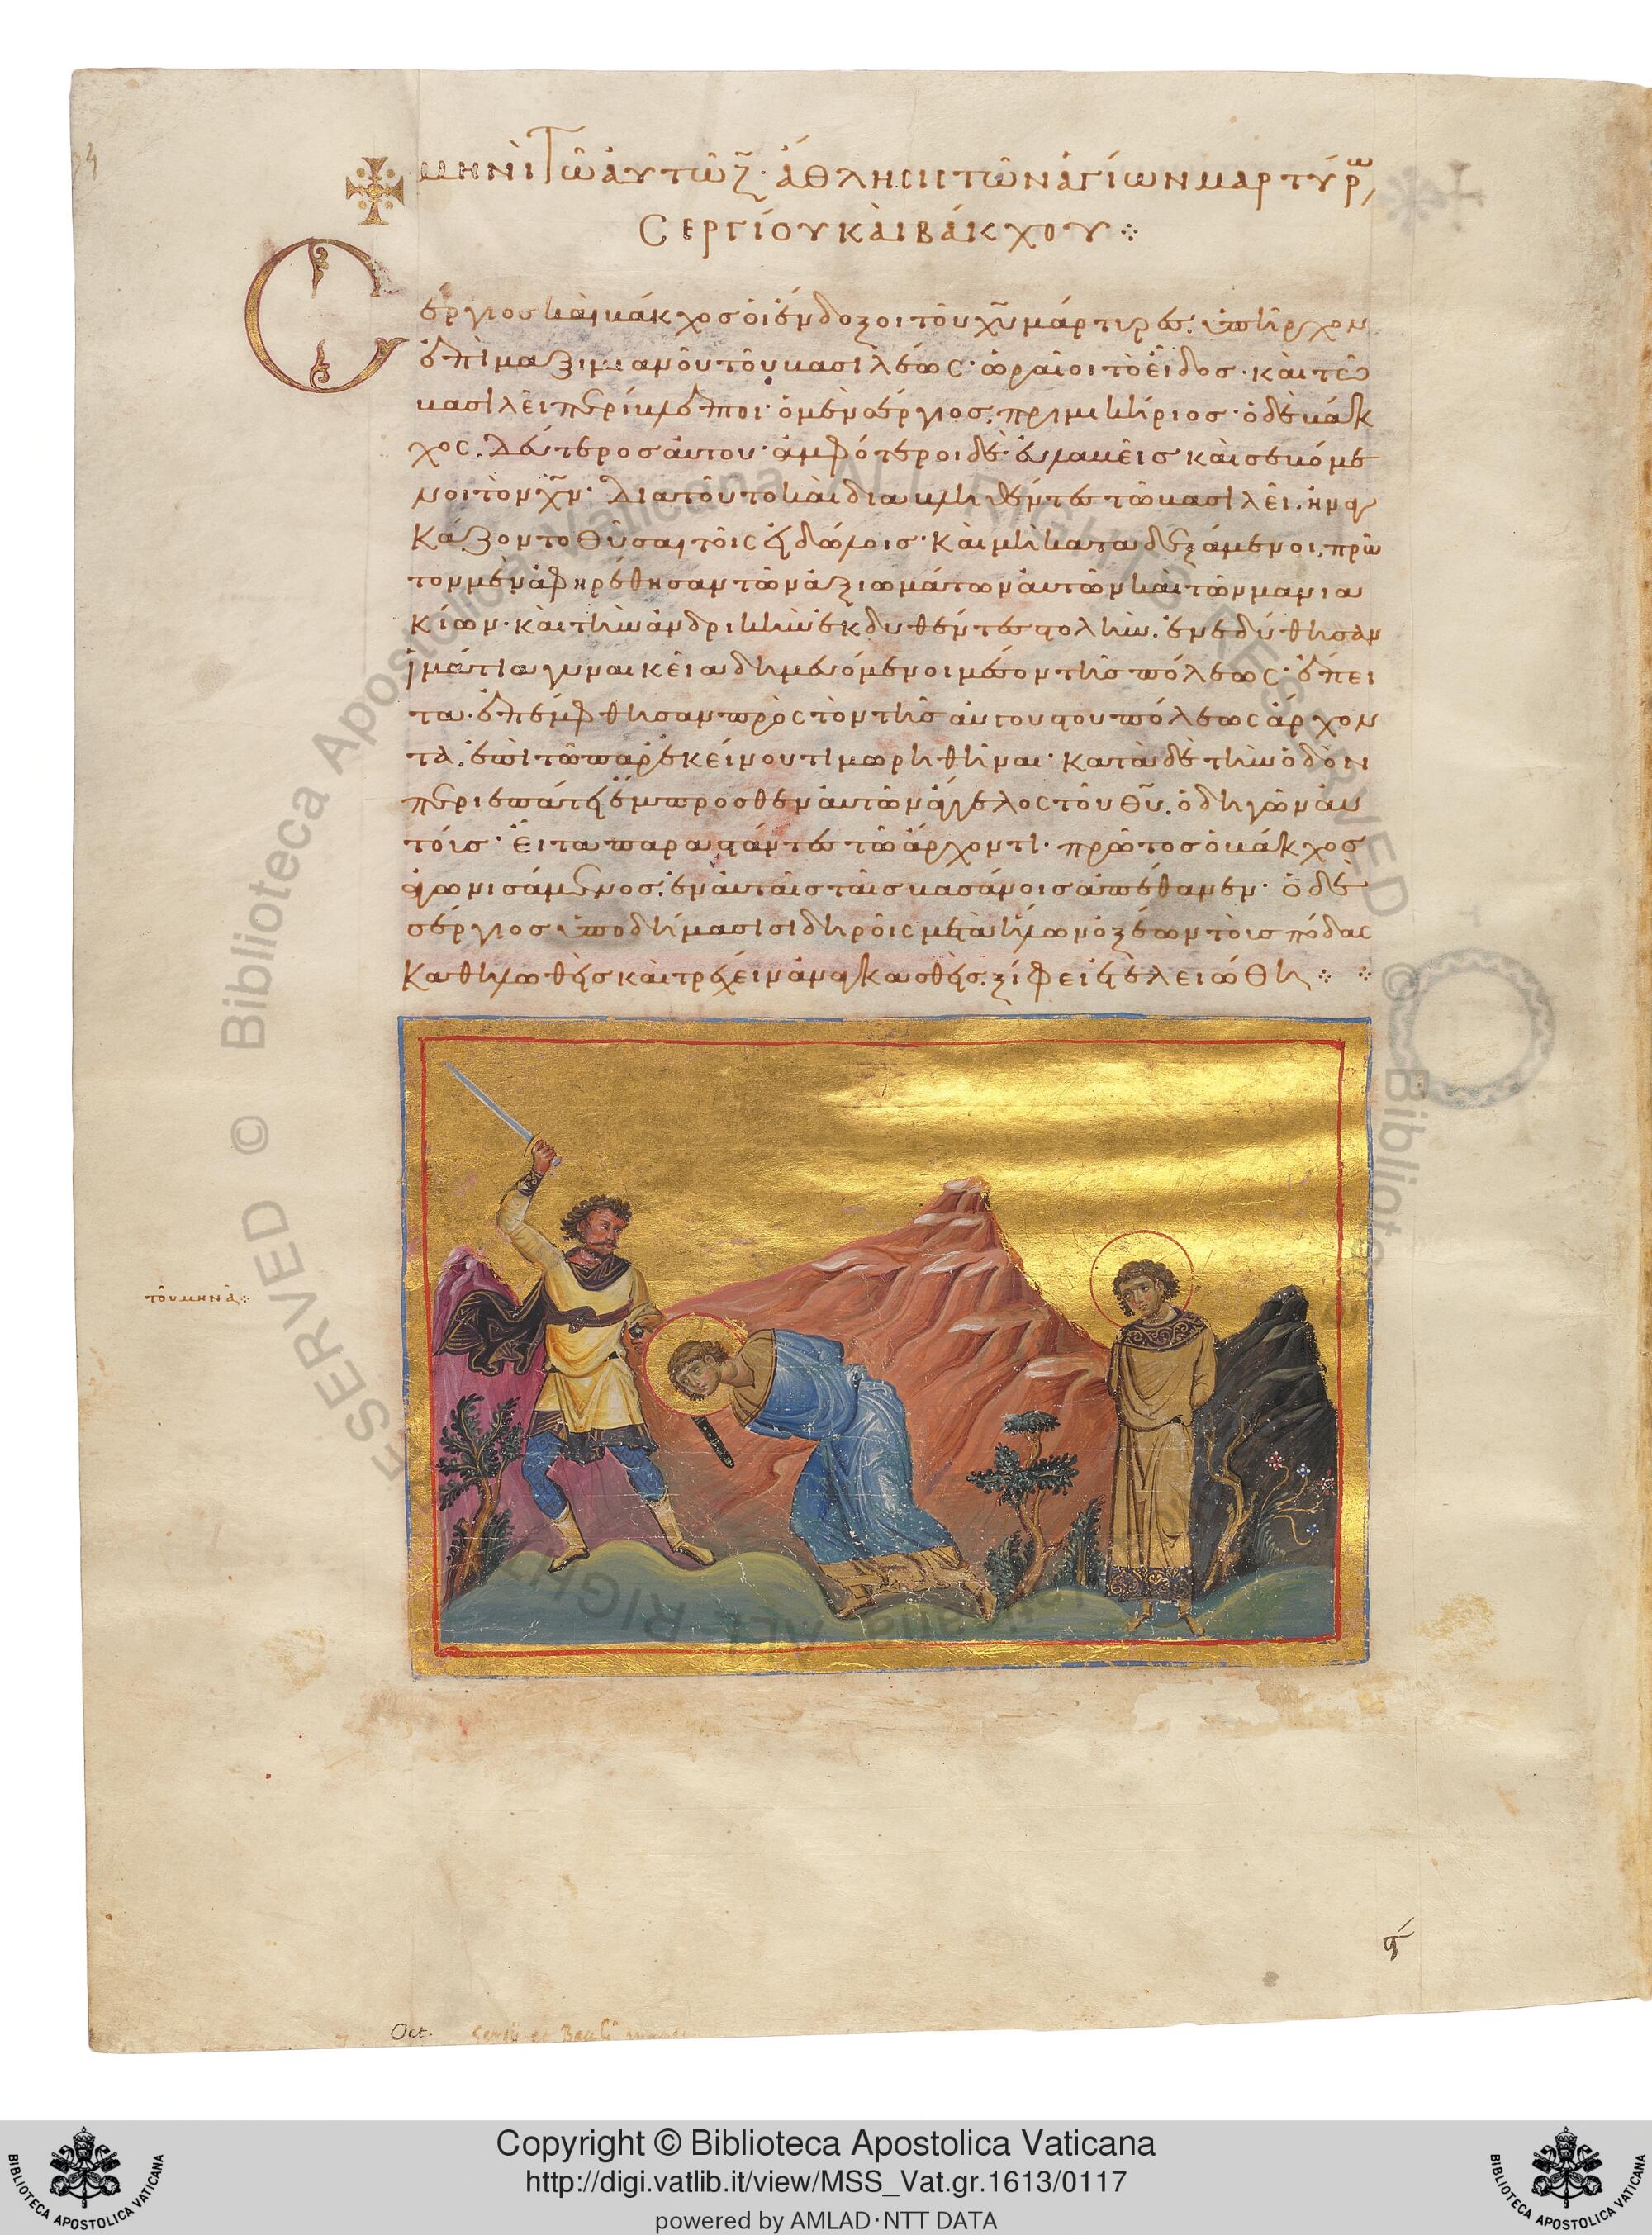 μηνὶ τῶ αὐτῶ ζ̄· ἄθλησις τῶν ἁγίων μαρτύρ
Σεργίου καὶ Βάκχου ⁘
Σέργιος καὶ βάκχος οἱ ἔνδοξοι τοῦ χῦ μάρτυρες. ὑπῆρχον
ἐπὶ μαξιμιανοῦ τοῦ βασιλέως· ὡραῖοι τὸ εἶδος· καὶ τῶ
βασιλεῖ περίβλεπτοι· ὁ μὲν σέργιος, πριμικήριος· ὁ δὲ βάκ
χος, δεύτερος αὐτοῦ· ἀμφότεροι δὲ εὐλαβεῖς καὶ σεβόμε
νοι τὸν χν· διατοῦτο καὶ διαβληθέντες τῶ βασιλεῖ. ἠναγ
κάζοντο θῦσαι τοῖς εἰδώλοις· καὶ μὴ καταδεξάμενοι, πρῶ
τον μὲν ἀφηρέθησαν τῶν ἀξιωμάτων αὐτῶν καὶ τῶν μανια
κίων· καὶ τὴν ἀνδρικὴν ἐκδυθέντες στολὴν. ἐνεδύθησαν
ἱμάτια γυναικεῖα δημευόμενοι μέσον τῆς πόλεως· ἔπει
τα ἐπέμφθησαν πρὸς τὸν τῆς αὐγούστου πόλεως ἄρχον
τα. ἐπὶ τῶ παρ' ἐκείνου τιμωρηθῆναι· κατὰ δὲ τὴν ὁδὸν
περιεπάτει ἔμπροσθεν αὐτῶν ἄγγελος τοῦ θῦ. ὁδηγῶν αὐ
τοῖς· εἶτα παραστάντες τῶ ἄρχοντι· πρῶτος ὁ βάκχος
ἀγωνισάμενος. ἐν αὐταῖς ταῖς βασάνοις ἀπέθανεν· ὁ δὲ
σέργιος ὑποδήμασι σιδηροῖς μετὰ ἥλων ὀξέων τοῖς πόδας
καθηλωθεὶς καὶ τρέχειν ἀναγκασθεὶς. ξίφει ἐτελειώθη ⁘ ⁘
τοῦ μηνᾶ ⁘
Oct.
Copyright © Biblioteca Apostolica Vaticana
http://digi.vatlib.it/view/MSS_Vat.gr.1613/0117
powered by AMLAD·NTT DATA
BIBLIOTECA APOSTOLICA VATICANA
BIBLIOTECA APOSTOLICA VATICANA